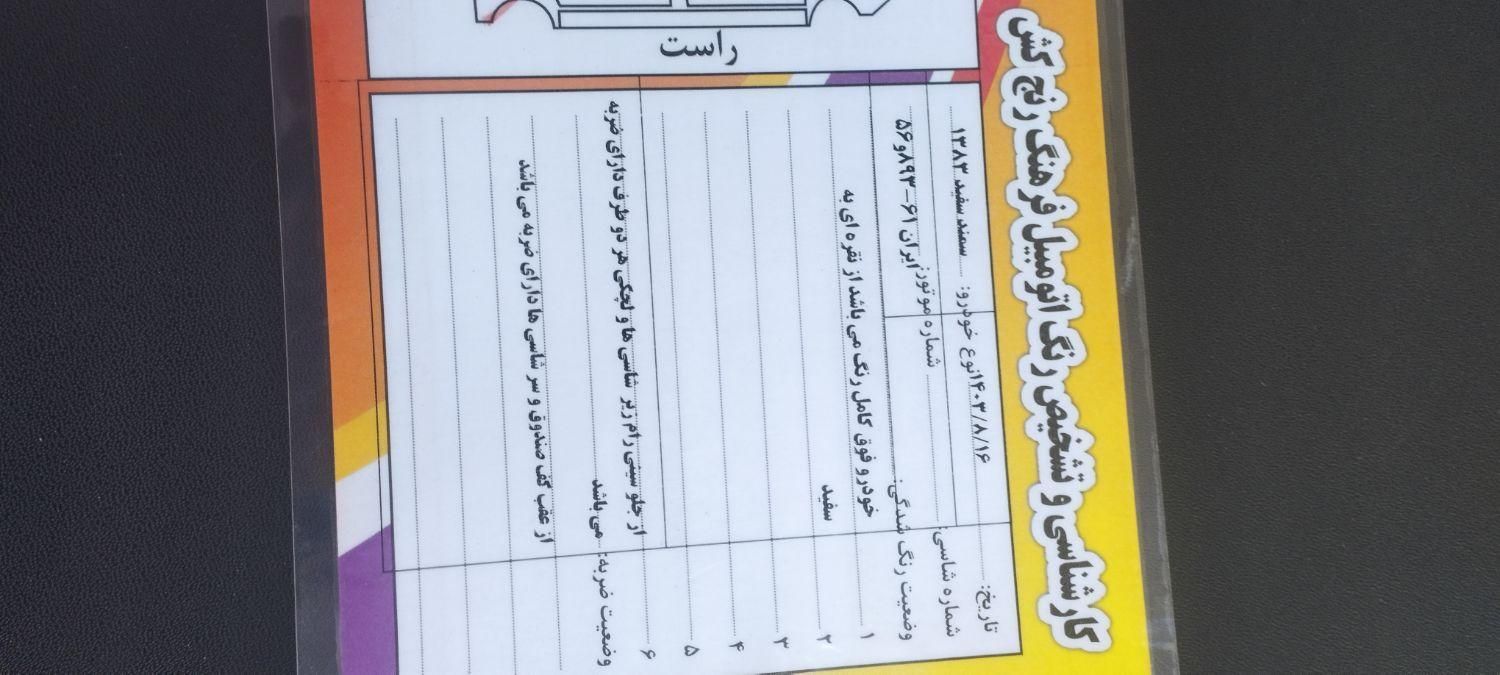 کارشناسی و تشخیص رنگ اتومبیل فرهنگ رنج کش
راست
تاریخ: ۱۴۰۳/۸/۱۶ نوع خودرو: سمند سفید ۱۳۸۳
شماره شاسی: شماره موتور: ایران ۶۱-۸۹۳و۵۶
وضعیت رنگ شدگی:
۱ خودرو فوق کامل رنگ می باشد از نقره ای به
۲ سفید
۳
۴
۵
۶
وضعیت ضربه: از جلو سینی رام زیر شاسی ها و لچکی هر دو طرف دارای ضربه
می باشد
از عقب کف صندوق و سر شاسی ها دارای ضربه می باشد